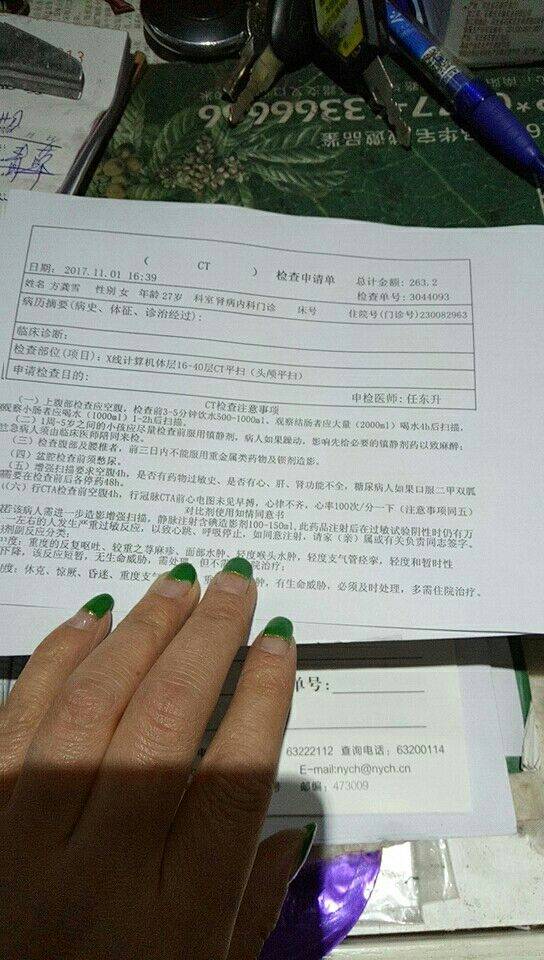 ( CT ) 检查申请单
日期: 2017.11.01 16:39 总计金额: 263.2
检查单号: 3044093
姓名 方龚雪 性别 女 年龄 27岁 科室 肾病内科门诊 床号
住院号(门诊号) 230082963
病历摘要(病史、体征、诊治经过):
临床诊断:
检查部位(项目): X线计算机体层16-40层CT平扫(头颅平扫)
申请检查目的: 申检医师: 任东升
CT检查注意事项
(一)上腹部检查应空腹,检查前3-5分钟饮水500-1000ml。观察结肠者应大量(2000ml)喝水4h后扫描。
观察小肠者应喝水(1000ml)1-2h后扫描。
(二)1周-5岁之间的小孩应尽量检查前服用镇静剂,病人如果躁动,影响先给必要的镇静剂药以致麻醉;
危急病人须由临床医师陪同来检。
(三)检查腹部及腰椎者,前三日内不能服用重金属类药物及钡剂造影。
(四)盆腔检查前须憋尿。
(五)增强扫描要求空腹4h,是否有药物过敏史、是否有心、肝、肾功能不全,糖尿病人如果口服二甲双胍
需要在检查前后各停药48h。
(六)行CTA检查前空腹4h,行冠脉CTA前心电图未见早搏,心律不齐,心率100次/分一下(注意事项同五)
对比剂使用知情同意书
若该病人需进一步造影增强扫描,静脉注射含碘造影剂100-150ml,此药品注射后在过敏试验阴性时仍有万
一左右的人发生严重过敏反应,以致心跳、呼吸停止,如同意注射,请家(亲)属或有关负责同志签字。
剂副反应分类:
度: 重度的反复呕吐、较重之荨麻疹、面部水肿、轻度喉头水肿、轻度支气管痉挛,轻度和暂时性
下降,该反应短暂,无生命威胁,需处理,但不需住院治疗;
度: 休克、惊厥、昏迷、重度支气 重 肿,有生命威胁,必须及时处理,多需住院治疗。
单号:
63222112 查询电话: 63200114
E-mail:nych@nych.cn
邮编: 473009